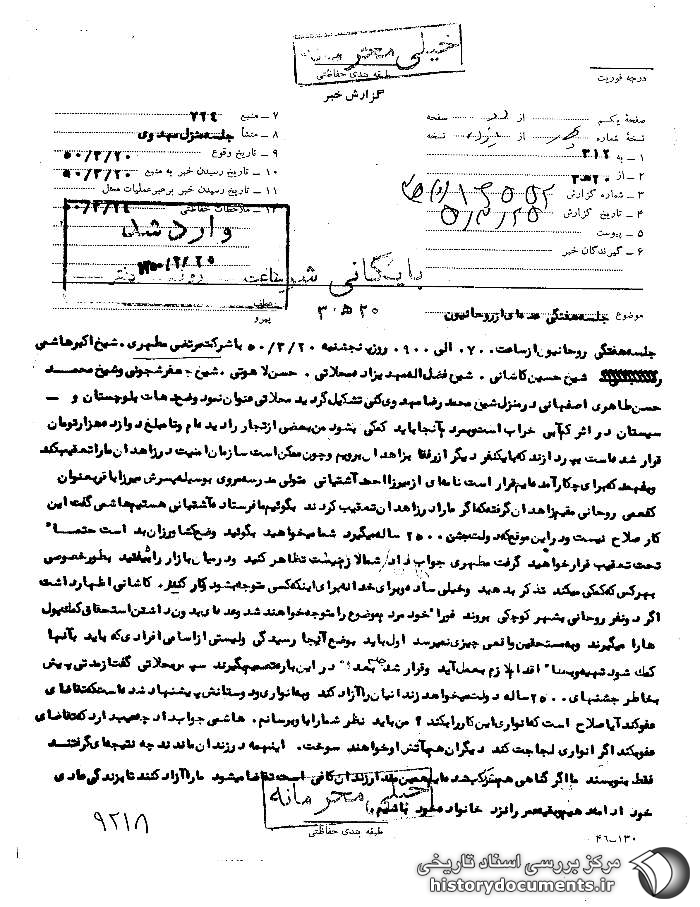 خیلی محرمانه
طبقه بندی حفاظتی
گزارش خبر
درجه فوریت
صفحه یکم از صفحه
نسخه شماره از نسخه
۱ – به ۳۱۲
۲ – از ۲۰ ﻫ ۳
۳ – شماره گزارش
۴ – تاریخ گزارش
۵ – پیوست
۶ – گیرندگان خبر
۷ – منبع ۷۲۴
۸ – منشأ جلسه منزل مهدوی
۹ – تاریخ وقوع ۵۰/۳/۲۰
۱۰ – تاریخ رسیدن خبر به منبع ۵۰/۳/۲۰
۱۱ – تاریخ رسیدن خبر برهبر عملیات محل
۱۲ – ملاحظات حفاظتی ۵۰/۳/۲۴
وارد شد
بایگانی شود
۲۰ ﻫ ۳۰
عطف
پیرو
موضوع جلسه هفتگی عده ای از روحانیون
جلسه هفتگی روحانیون از ساعت ۰۷۰۰ الی ۰۹۰۰ روز پنجشنبه ۵۰/۳/۲۰ با شرکت مرتضی مطهری، شیخ اکبر هاشمی
شیخ حسین کاشانی، شیخ فضل اله مهدیزاده محلاتی، حسن لاهوتی، شیخ جعفر شجونی و شیخ محمد
حسن طاهری اصفهانی در منزل شیخ محمد رضا مهدوی کنی تشکیل گردید محلاتی عنوان نمود وضع دهات بلوچستان و –
سیستان در اثر کم آبی خراب است و بمردم آنجا باید کمکی بشود من بعضی از تجار را دیده ام و تا مبلغ دوازده هزار تومان
قرار شده است بپردازند که با یکنفر دیگر از رفقا بزاهدان برویم و چون ممکن است سازمان امنیت در زاهدان ما را تعقیب کند
و بفهمد که برای چکار آمده ایم قرار است نامه ای از میرزا احمد آشتیانی متولی مدرسه مروی بوسیله پسرش میرزا باقر بعنوان
کفعمی روحانی مقیم زاهدان گرفته که اگر ما را در زاهدان تعقیب کردند بگوئیم ما فرستاده آشتیانی هستیم هاشمی گفت این
کار صلاح نیست و در این موقع که دولت جشن ۲۵۰۰ ساله میگیرد شما میخواهید بگوئید وضع کشاورزان بد است حتما"
تحت تعقیب قرار خواهید گرفت مطهری جواب داد شما لازم نیست تظاهر کنید و در میان بازار راه بیفتید بطور خصوصی
بهر کس که کمکی میکند تذکر بدهید و خیلی ساده و برای خدا نه برای اینکه کسی متوجه بشود کار کنید. کاشانی اظهار داشت
اگر دو نفر روحانی بشهر کوچکی بروند فورا" خود مردم موضوع را متوجه خواهند شد و عده ای بدون داشتن استحقاق کمک پول
ها را میگیرند و به مستحقین واقعی چیزی نمیرسد اول باید بوضع آنجا رسیدگی و لیستی از اسامی افرادی که باید بآنها
کمک شود تهیه و بعدا" اقدام لازم بعمل آید و قرار شد بعدا" در این باره تصمیم بگیرند سپس محلاتی گفت از مدتی پیش
بخاطر جشنهای ۲۵۰۰ ساله دولت میخواهد زندانیان را آزاد کند و به انواری و دوستانش پیشنهاد شده است که تقاضای
عفو کند آیا صلاح است که انواری این کار را بکند ؟ من باید نظر شما را باو برسانم. هاشمی جواب داد چه عیب دارد که تقاضای
عفو بکند اگر انواری لجاجت کند دیگران هم بآتش او خواهند سوخت. اینهمه در زندان ماندند چه نتیجه ای گرفتند
فقط بنویسند ما اگر گناهی هم مرتکب شده ایم همین مقدار زندان کافی است تقاضا میشود ما را آزاد کنند تا بزندگی عادی
خود ادامه دهیم و بقیه عمر را نزد خانواده خود باشیم.
خیلی محرمانه
طبقه بندی حفاظتی
۹۲۱۸
۴۶–۱۳۰
مرکز بررسی اسناد تاریخی
historydocuments.ir